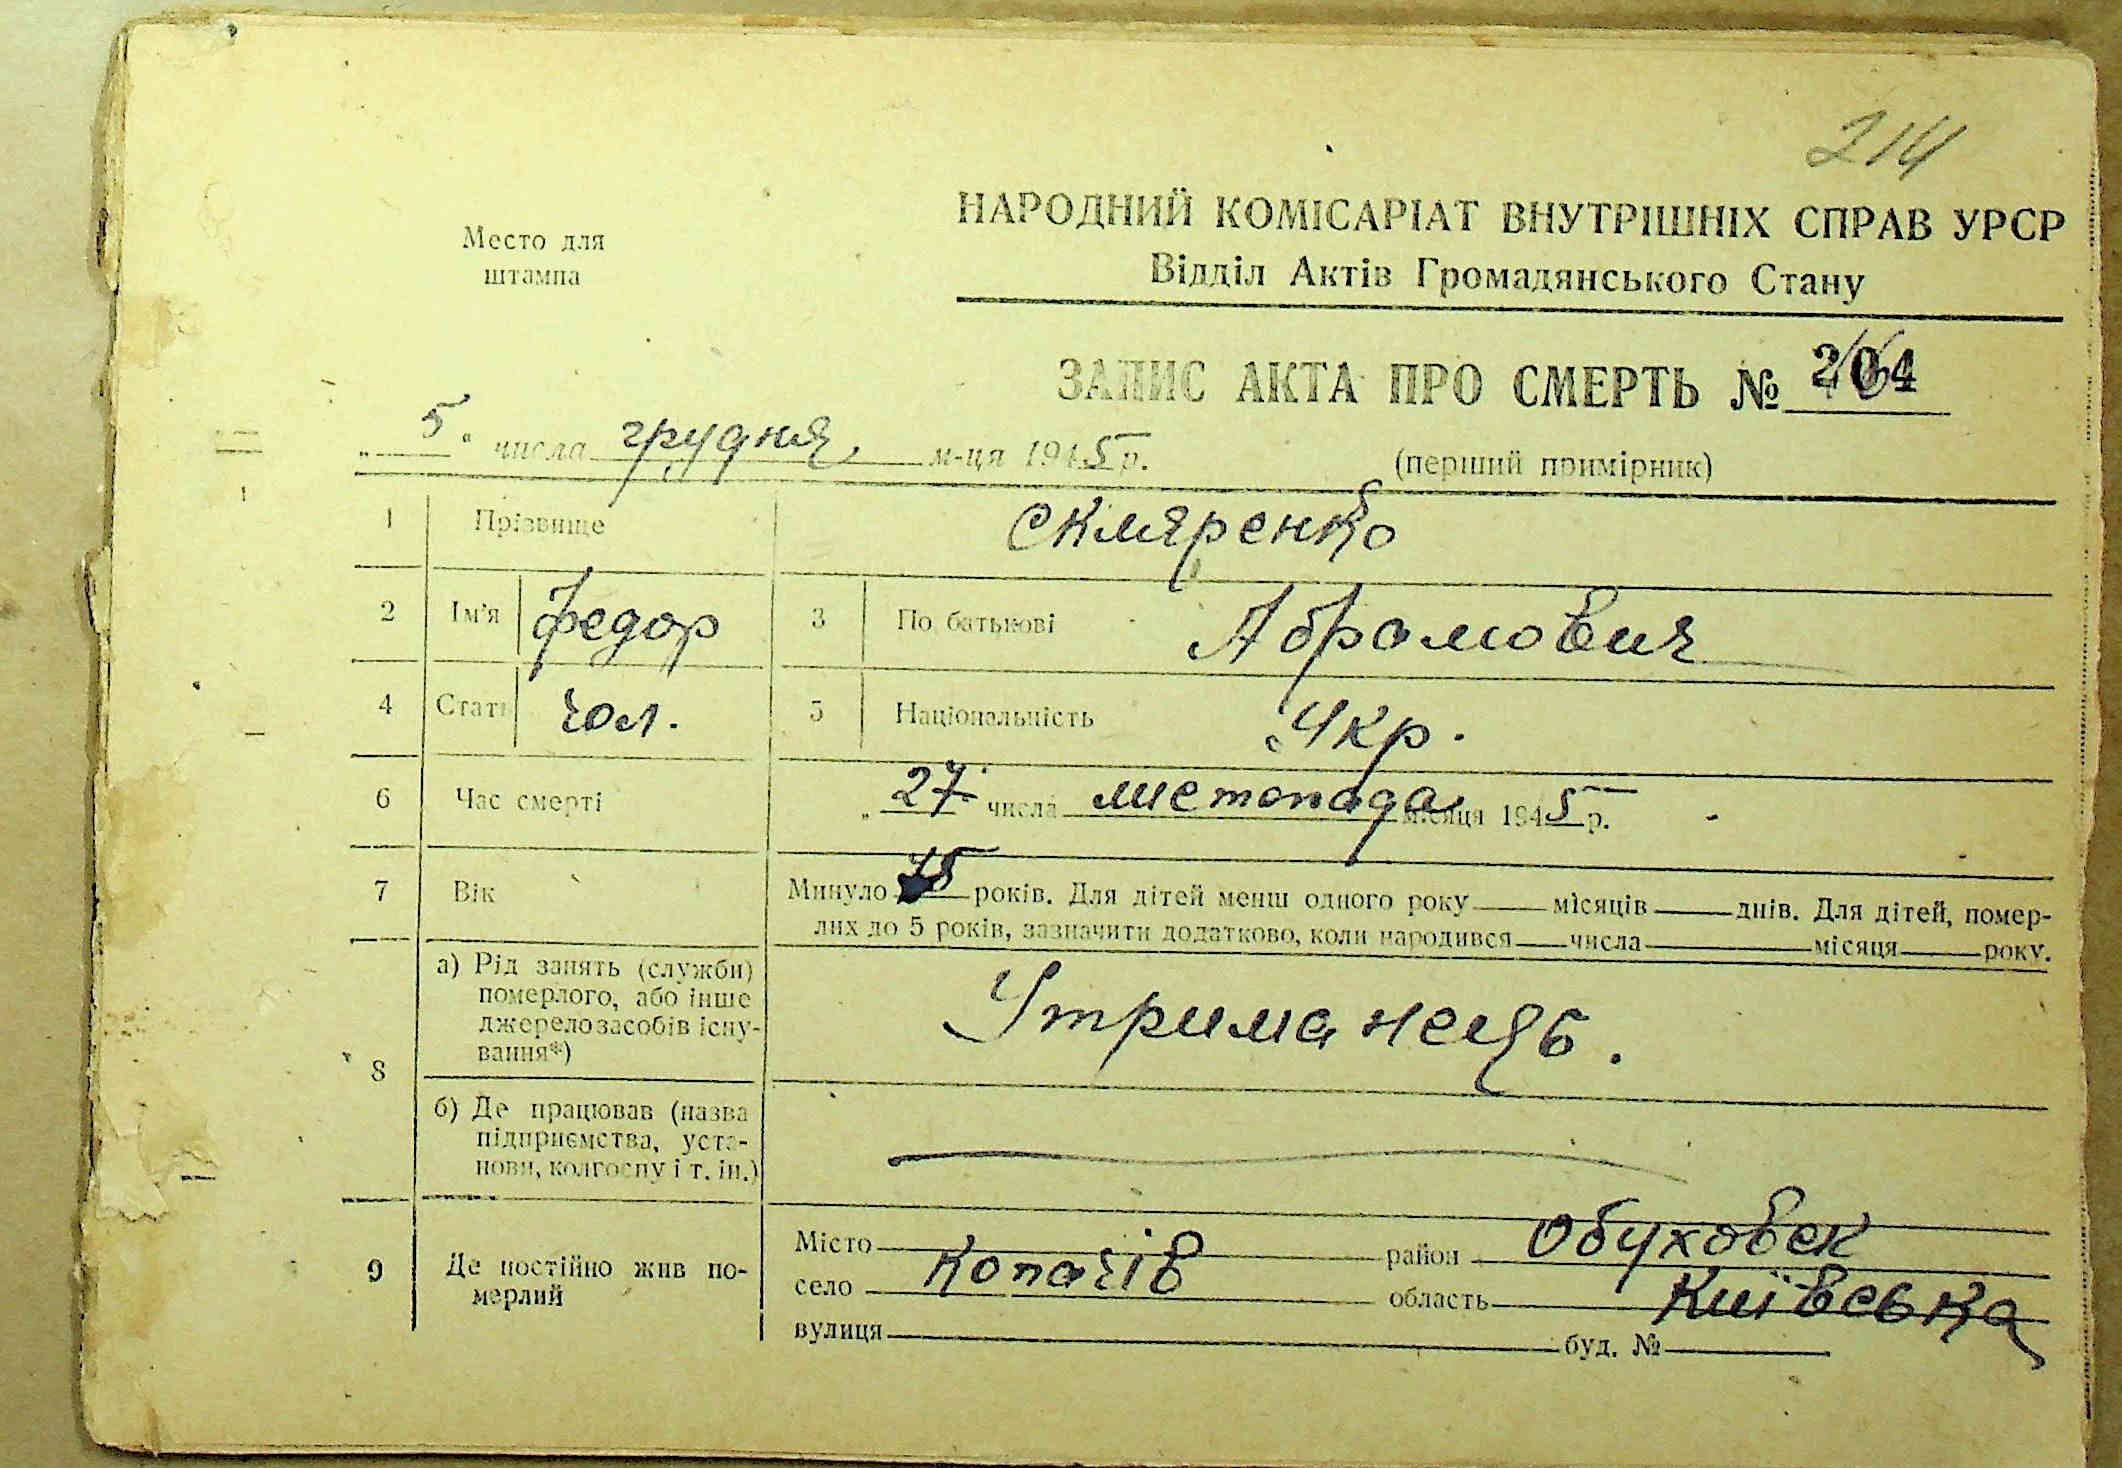 214
Место для
штампа
НАРОДНИЙ КОМІСАРІАТ ВНУТРІШНІХ СПРАВ УРСР
Відділ Актів Громадянського Стану
ЗАПИС АКТА ПРО СМЕРТЬ №
„ 5 “ числа грудня м-ця 1945 р.
(перший примірник)
1 Прізвище Скляренко
2 Ім'я Федор 3 По батькові Абрамович
4 Стать чол. 5 Національність Укр.
6 Час смерті „ 27 “ числа листопада місяця 1945 р.
7 Вік Минуло 75 років. Для дітей менш одного року місяців днів. Для дітей, помер-
лих до 5 років, зазначити додатково, коли народився числа місяця року.
8 а) Рід занять (служби)
померлого, або інше
джерело засобів існу-
вання*)
Утриманець.
б) Де працював (назва
підприємства, уста-
нови, колгоспу і т. ін.)
9 Де постійно жив по-
мерлий
Місто район Обуховск
село Копачів область Київська
вулиця буд. №